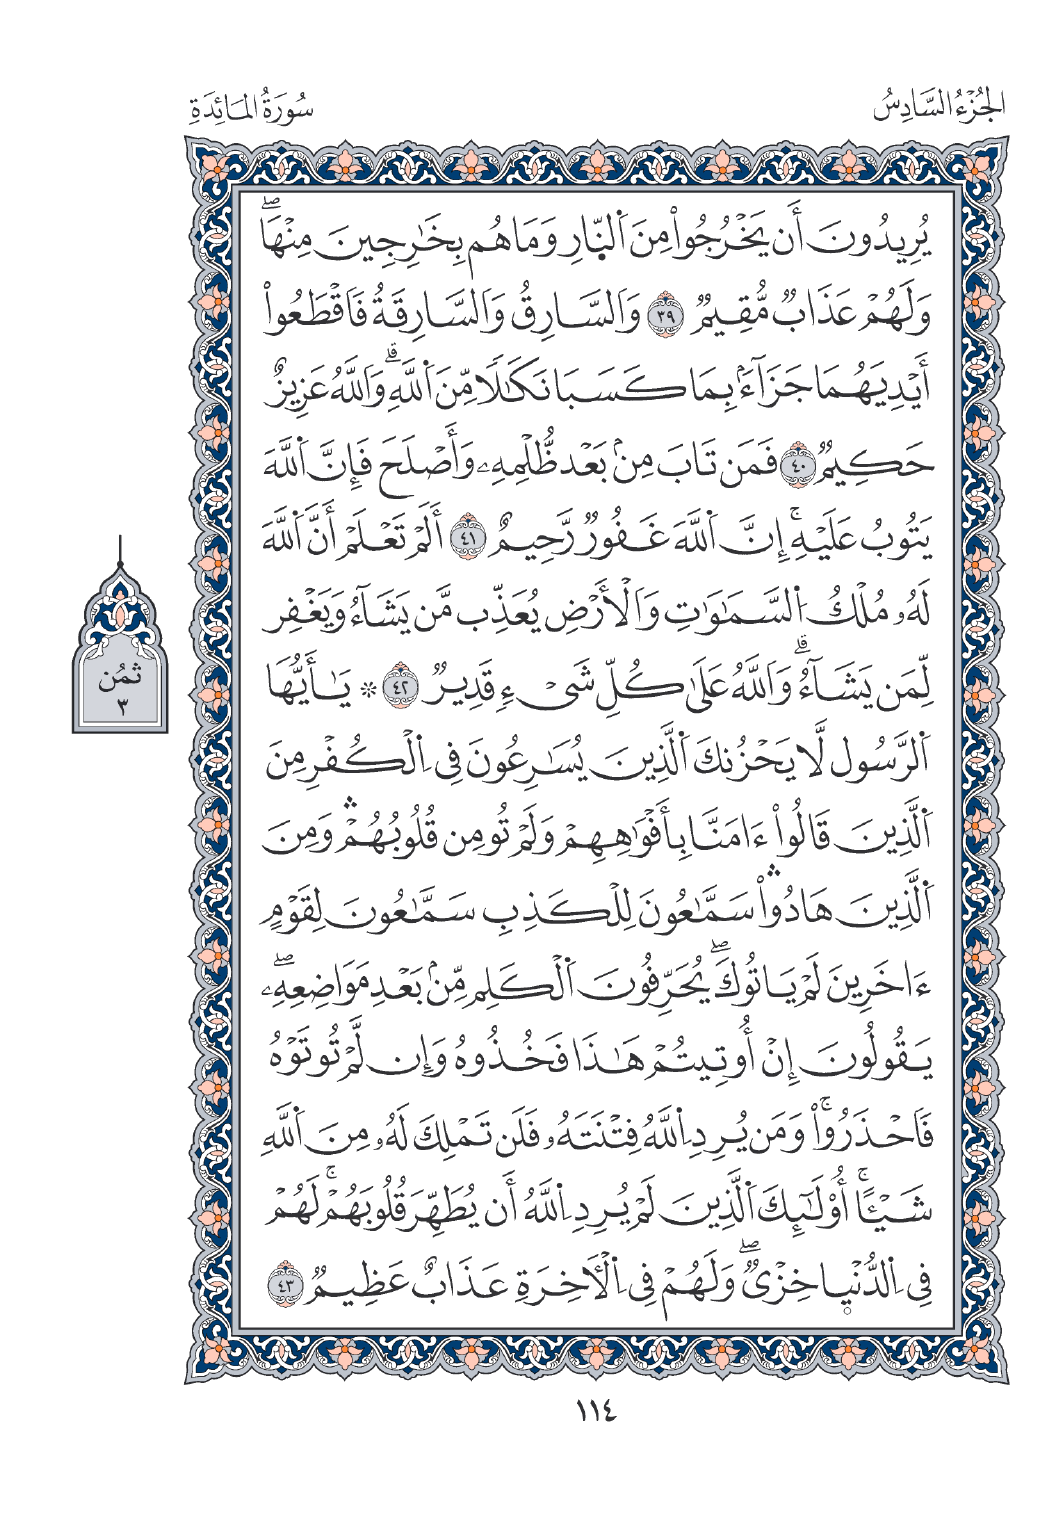 الجُزْءُ السَّادِسُ
سُورَةُ المَائِدَةِ
يُرِيدُونَ أَن يَخْرُجُواْ مِنَ اَ۬لنّ۪ارِ وَمَا هُم بِخَٰرِجِينَ مِنْهَاۖ
وَلَهُمْ عَذَابٞ مُّقِيمٞ ٣٩ وَالسَّارِقُ وَالسَّارِقَةُ فَاقْطَعُواْ
أَيْدِيَهُمَا جَزَآءَۢ بِمَا كَسَبَا نَكَٰلٗا مِّنَ اَ۬للَّهِۗ وَاللَّهُ عَزِيزٌ
حَكِيمٞ ٤٠ فَمَن تَابَ مِنۢ بَعْد ظُّلْمِهِۦ وَأَصْلَحَ فَإِنَّ اَ۬للَّهَ
يَتُوبُ عَلَيْهِۚ إِنَّ اَ۬للَّهَ غَفُورٞ رَّحِيمٌ ٤١ أَلَمْ تَعْلَمْ أَنَّ اَ۬للَّهَ
لَهُۥ مُلْكُ اُ۬لسَّمَٰوَٰتِ وَالْأَرْضِ يُعَذِّب مَّن يَشَآءُ وَيَغْفِر
لِّمَن يَشَآءُۗ وَاللَّهُ عَلَىٰ كُلِّ شَيْءٖ قَدِيرٞ ٤٢ ۞ يَٰأَيُّهَا
ثمُن
٣
اَ۬لرَّسُول لَّا يَحْزُنكَ اَ۬لَّذِينَ يُسَٰرِعُونَ فِي اِ۬لْكُفْرِ مِنَ
اَ۬لَّذِينَ قَالُواْ ءَامَنَّا بِأَفْوَٰهِهِمْ وَلَمْ تُومِن قُلُوبُهُمْۛ وَمِنَ
اَ۬لَّذِينَ هَادُواْۛ سَمَّٰعُونَ لِلْكَذِبِ سَمَّٰعُونَ لِقَوْمٍ
ءَاخَرِينَ لَمْ يَاتُوكَۖ يُحَرِّفُونَ اَ۬لْكَلِم مِّنۢ بَعْدِ مَوَاضِعِهِۦۖ
يَقُولُونَ إِنْ أُوتِيتُمْ هَٰذَا فَخُذُوهُ وَإِن لَّمْ تُوتَوْهُ
فَاحْذَرُواْۚ وَمَن يُرِدِ اِ۬للَّهُ فِتْنَتَهُۥ فَلَن تَمْلِكَ لَهُۥ مِنَ اَ۬للَّهِ
شَيْـًٔاۚ أُوْلَٰٓئِكَ اَ۬لَّذِينَ لَمْ يُرِدِ اِ۬للَّهُ أَن يُطَهِّرَ قُلُوبَهُمْۚ لَهُمْ
فِي اِ۬لدُّنْي۪ا خِزْيٞۖ وَلَهُمْ فِي اِ۬لْأٓخِرَةِ عَذَابٌ عَظِيمٞ ٤٣
١١٤